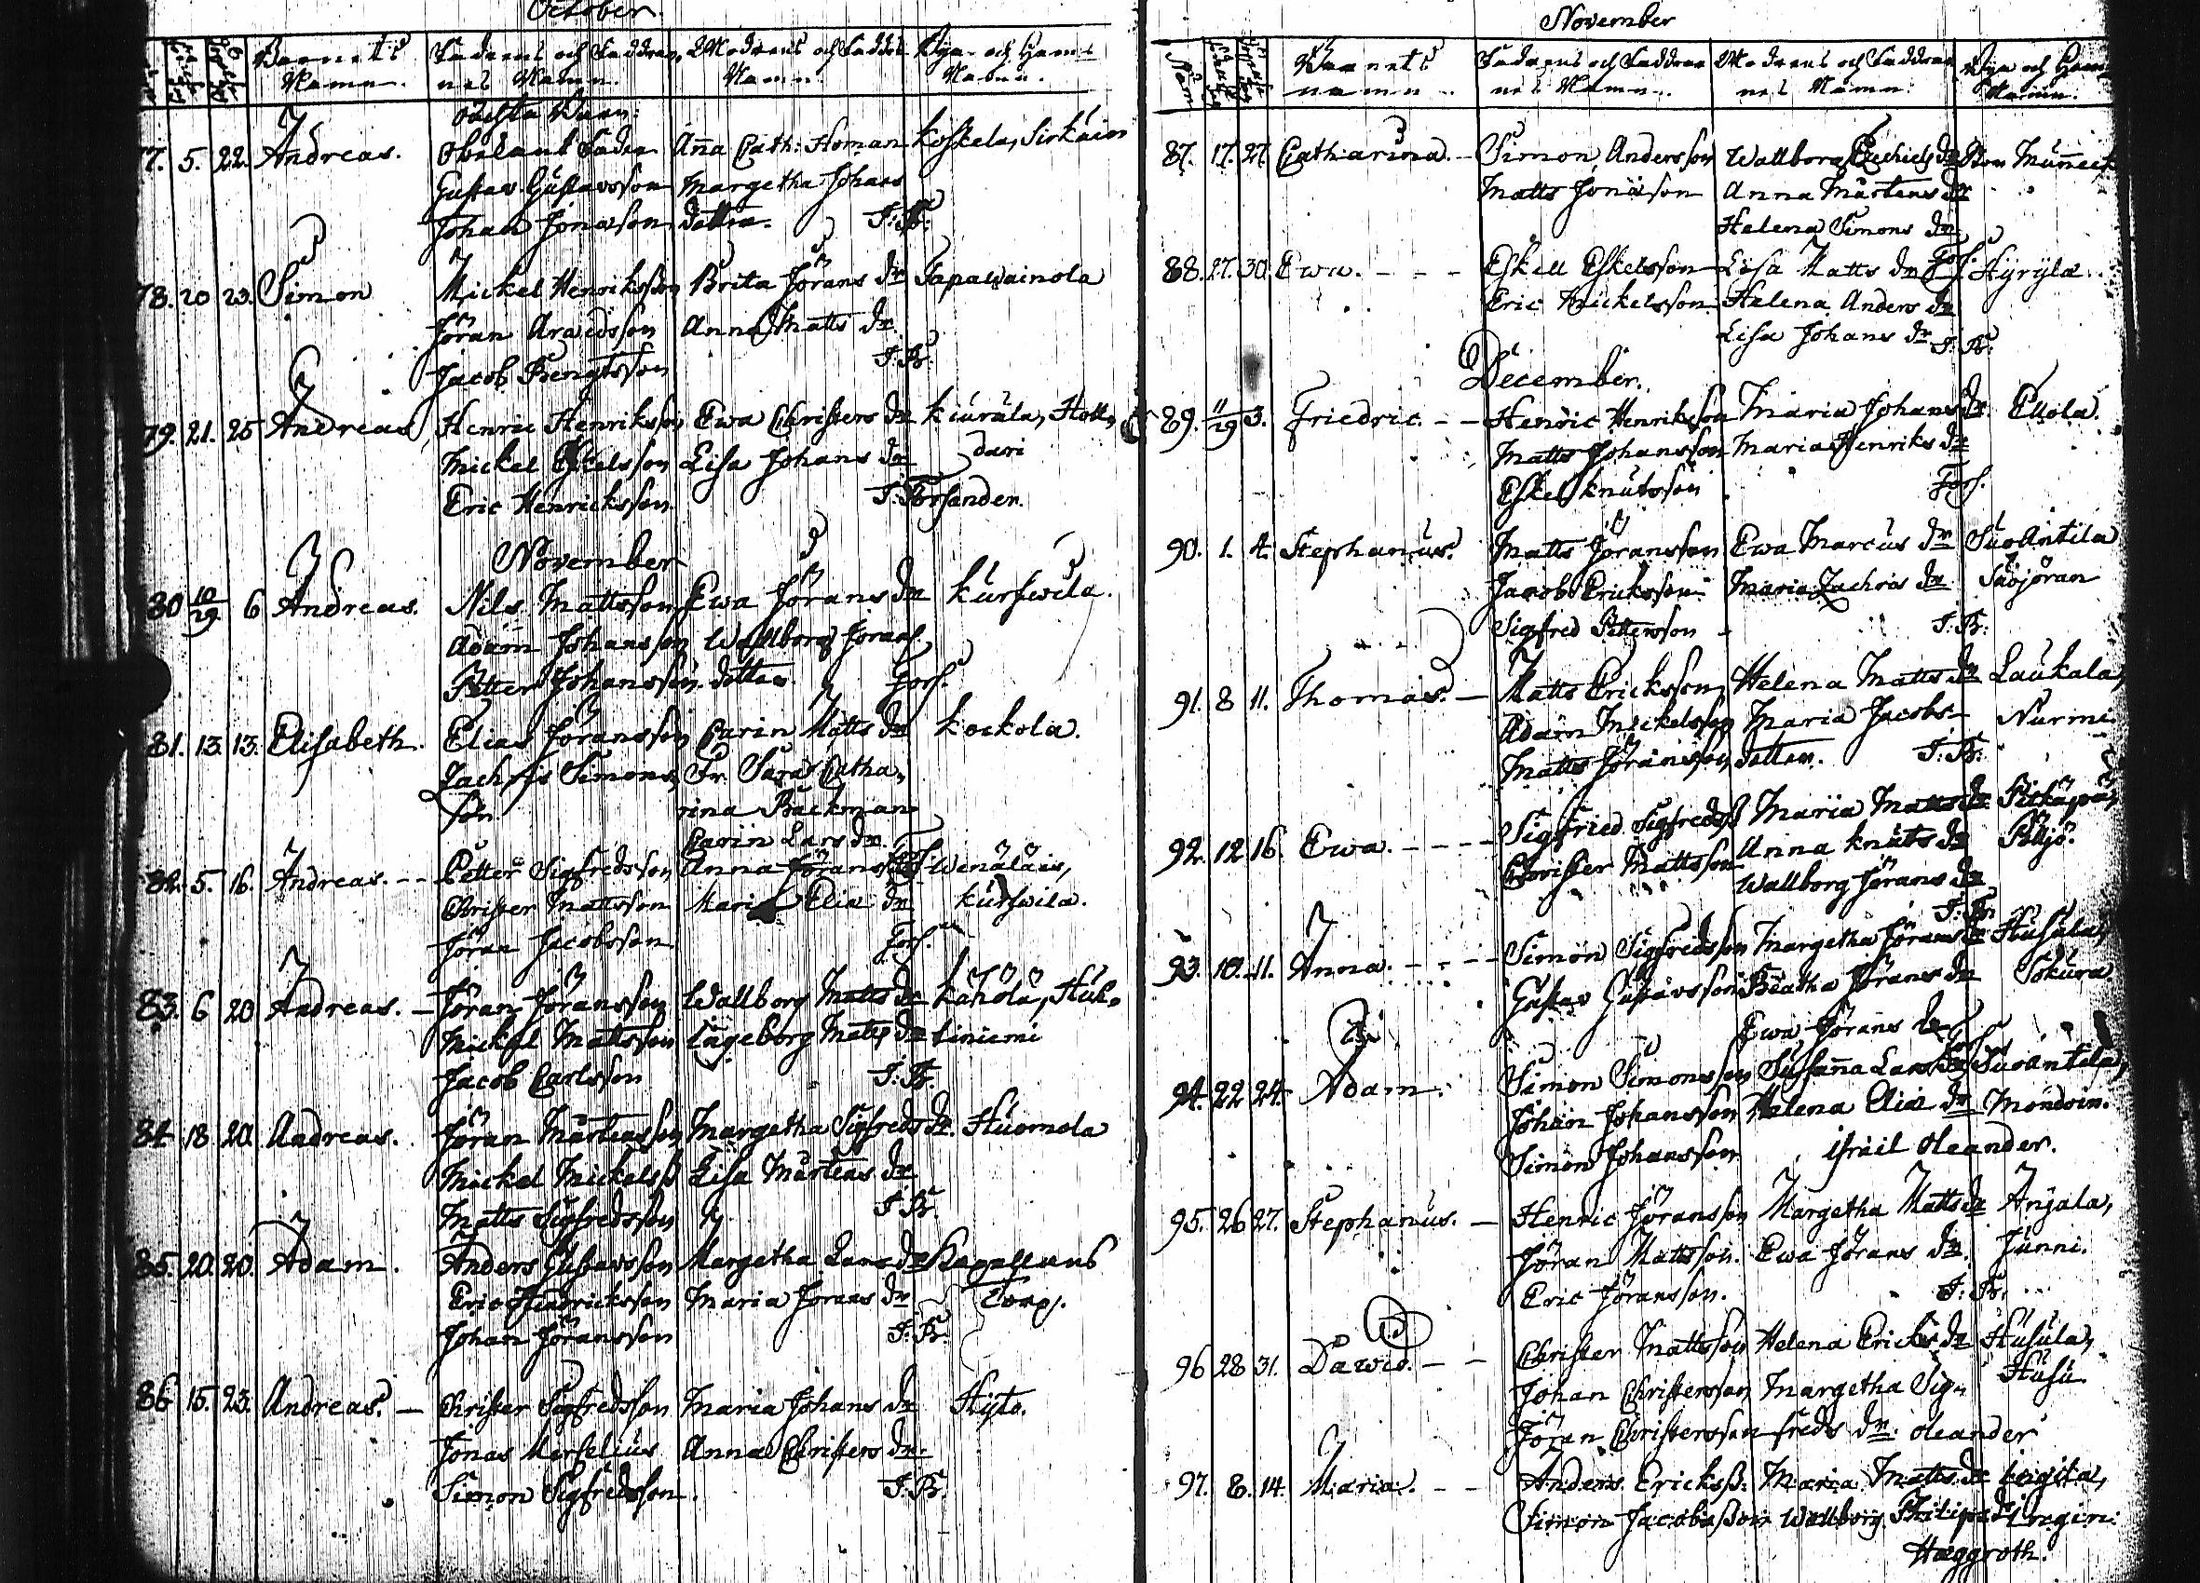 October.
Barnets Namn. Fadrens och Faddrarnes Namn. Modrens och Faddrars Namn. Bya- och Hem- Nabun.
oächta Barn:
77. 5. 22. Andreas. Obekant Fader Aña Cath: Homan Koskela, Sirkäin
Gustav Gustavsson Margetha Johans
Johan Jonasson dotter. J: B:
78. 20 23. Simon Mickel Henriksson Brita Jörans dr Tapawainola
Jöran Arwidsson Anna Matts dr.
Jacob Bengtsson J: B:
79. 21. 25 Andreas Henric Henriksson Ewa Christers dr Kiurula, Hott,
Mickel Eskelsson Lisa Johans dr dari
Eric Henricksson. J: Forsander.
November
80 10/29. 6 Andreas. Nils Mattsson Ewa Jörans dr Kurswila.
Adam Johansson Wallborg Jörans
Petter Johansson dotter Fors.
81. 13. 13. Elisabeth. Elias Jöransson Carin Matts dr Kockola.
Zachris Simons Fr. Sara Catha,
son rina Bäckman
Carin Lars dr.
82. 5. 16. Andreas. -- Petter Sigfredsson Anna Jörans Wenäläis,
Christer Mattsson Maria Elia dr Kurswila.
Jöran Jacobsson Fors.
83. 6 20 Andreas. — Jöran Jöransson Wallborg Matts dr Kähölä, Huk.
Mickel Mattsson Ingeborg Matts dr tiniemi
Jacob Carlsson J: B.
84 18 20. Andreas. Jöran Mårtensson Margetha Sigfreds dr. Huomola
Mickel Mickelss Lisa Mårtens dr
Matts Sigfredsson J: B.
85. 20. 20. Adam. Anders Gustavsson Margetha Lars dr Capellans
Eric Hendricksson Maria Jörans dr Torp.
Johan Jöransson J: B.
86 15. 23. Andreas. — Christer Sigfredsson Maria Johans dr Hyto.
Jonas Marselius Anna Christers dr.
Simon Sigfredsson. J: B.
November
Barnets namn Fadrens och Faddrarnes Namn. Modrens och Faddrarnes Namn. Bya och Hem Namn.
87. 17. 27. Catharina. — Simon Andersson Wallborg Ezechiels dr Stor Muñeck
Matts Jonasson Anna Mårtens dr
Helena Simons dr
88. 27. 30. Ewa. - - - Eskell Eskelsson Lisa Matts dr Fors. Hyrylä.
Eric Mickelsson Helena Anders dr
Lisa Johans dr J: B:
December.
89. 11/29 3. Friedric. - - Henric Henriksson Maria Johans dr. Ellola.
Matts Johansson Maria Henriks dr
Eskel Knutsson Fors.
90. 1. 4. Stephanus. Matts Jöransson Ewa Marcus dr SuoAntila
Jacob Ericksson Maria Zachris dr
Sigfred Pettersson J: B:
91. 8 11. Thomas. — Matts Ericksson Helena Matts dr Laukala,
Adam Mickelsson Maria Jacobs- Nurmi
Matts Jöransson dotter. J: B:
92. 12. 16. Ewa. - - - - Sigfried Sigfredss Maria Matts dr Pitkäpä,
Christer Mattsson Anna Knuts dr
Wallborg Jörans dr
J: B:
93. 10. 11. Anna. - - - Simon Sigfredsson Margetha Jörans dr Husula,
Gustav Gustavsson Beatha Jörans dr Sokura
Ewa Jörans dr
Fors.
94. 22 24. Adam. Simon Simonsson Susaña Lars dr SuoAntila,
Johan Johansson Helena Elia dr Möndoin.
Simon Johansson israil Oleander.
95. 26 27. Stephanus. — Henric Jöransson Margetha Matts dr Anjala,
Jöran Mattsson. Ewa Jörans dr. Junni.
Eric Jöransson. J: B.
96 28 31. Dawid. - - Christer Mattsson Helena Ericks dr Husula,
Johan Christersson Margetha Sig- Husu
Jöran Christersson freds dr. Oleander
97. 8. 14. Maria. - - Anders Ericksß: Maria Matts dr
Simon Jacobsson Wallborg Philips dr
Hæggroth.